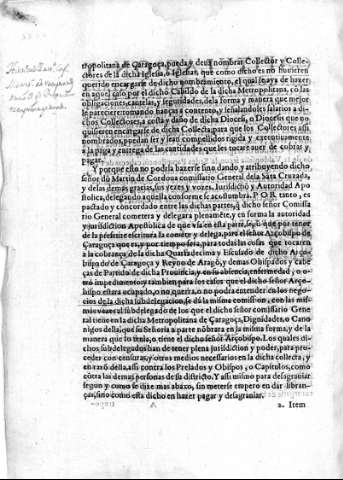 tropolitana de Caragoça, pueda y deua nombrar Collector y Colle-
ctores de la dicha Iglesia, o Iglesias, que como dicho es no huuieren
querido encargarse de dicho nombramiento, el qual se aya de hazer
en aquel caso por el dicho Cabildo de la dicha Metropolitana, cō las
obligaciones, cautelas, y seguridades, de la forma y manera que mejor
le pareciere tomando fianças y contento, y señalandoles salarios a di-
chos Collectores, a costa y daño de dicha Diocesi, o Diocesis que no
quisieren encargarse de dicha Collecta, para que los Collectores assi
nombrados, puedan ser y sean compelidos rigida y executiuamente,
a la paga y entrega de las cantidades que les tocare auer de cobrar y
pagar.
Y porque esto no podria hazerse sino dando y atribuyendo dicho
señor dō Martin de Cordoua comissario General de la Sāta Cruzada,
y de las demas gracias, sus vezes y vozes, Iurisdiciō y Autoridad Apo
stolica, delegando aquella conforme se acostumbra. POR tanto, es
pactado y concordado entre las dichas partes, q̄ dicho señor Comissa
rio General cometera y delegara plenamēte, y en forma la autoridad
y jurisdicion Apostolica de que vsa en esta parte, segū que por tenor
de la presente escritura la comete y delega, en el señor Arçobispo de
Caragoça que es, y por tiempo sera, para todas las cosas que tocaren
a la cobrança de la dicha Quarta decima y Escusado de dicho Arço-
bispado de Caragoça y Reyno de Aragō, y demas Obispados y cabe
ças de Partida de dicha Prouincia, y en su absencia, enfermedad, o o-
tro impedimento, y tambien para los casos que el dicho señor Arço-
bispo estara ocupado, o no querra, o no podra entender en los nego-
cios de la dicha subdelegacion, se dē la misma comission, con las mis-
mas vozes al subdelegado de los que el dicho señor comissario Gene
ral tiene en la dicha Metropolitana de Caragoça, Dignidades, o Cano
nigos desta, q̄ su Señoria a parte nōbrara en la misma forma, y de la
manera que lo tenia, o tiene el dicho señor Arçobispo. Los quales di-
chos subdelegados han de tener plena jurisdicion y poder, para pro-
ceder con censuras, y otros medios necessarios en la dicha collecta, y
en razō della, assi contra los Prelados y Obispos, o Capitulos, como
cōtra las demas personas de su districto. Y assi mismo para desagrauiar
segun y como se dize mas abaxo, sin meterse empero en dar libran-
ças, sino como esta dicho en hazer pagar y desagrauiar.
2. Item